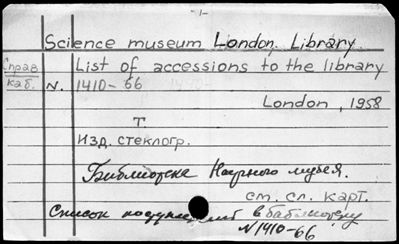 - 1 -
Science museum London. Library.
Справ. каб.
List of accessions to the library
N. 1410-66
London, 1958
T
Изд. стеклогр.
Библиотека Научного музея.
см. сл. карт.
Список поступлений в библиотеку
N 1410-66